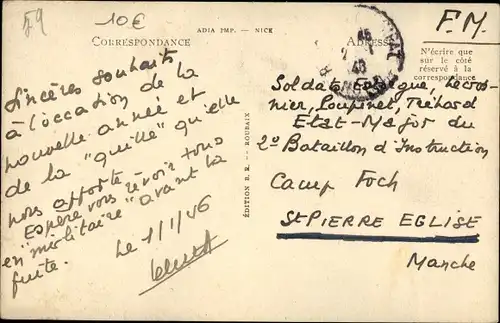 59
10€
ADIA IMP. - NICE
CORRESPONDANCE
ADRESSE
F.M.
N'écrire que
sur le côté
réservé à la
correspondance
Sincères souhaits
à l'occasion de la
nouvelle année et
de la "quille" qu'elle
nous apporte -
Espère vous revoir tous
en "militaire" avant la
fuite.
Le 1/1/46
ÉDITION R. R. - ROUBAIX
Soldats
nier, Loupinet, Tréhard
Etat-Major du
2º Bataillon d'Instruction
Camp Foch
St PIERRE EGLISE
Manche